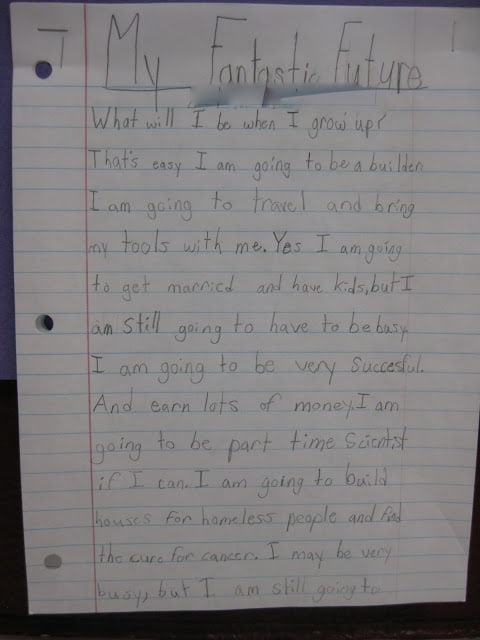 My Fantastic Future
What will I be when I grow up?
That's easy I am going to be a builder.
I am going to travel and bring
my tools with me. Yes I am going
to get married and have kids, but I
am still going to have to be busy.
I am going to be very Succesful.
And earn lots of money. I am
going to be part time Scientist
if I can. I am going to build
houses for homeless people and find
the cure for cancer. I may be very
busy, but I am still going to